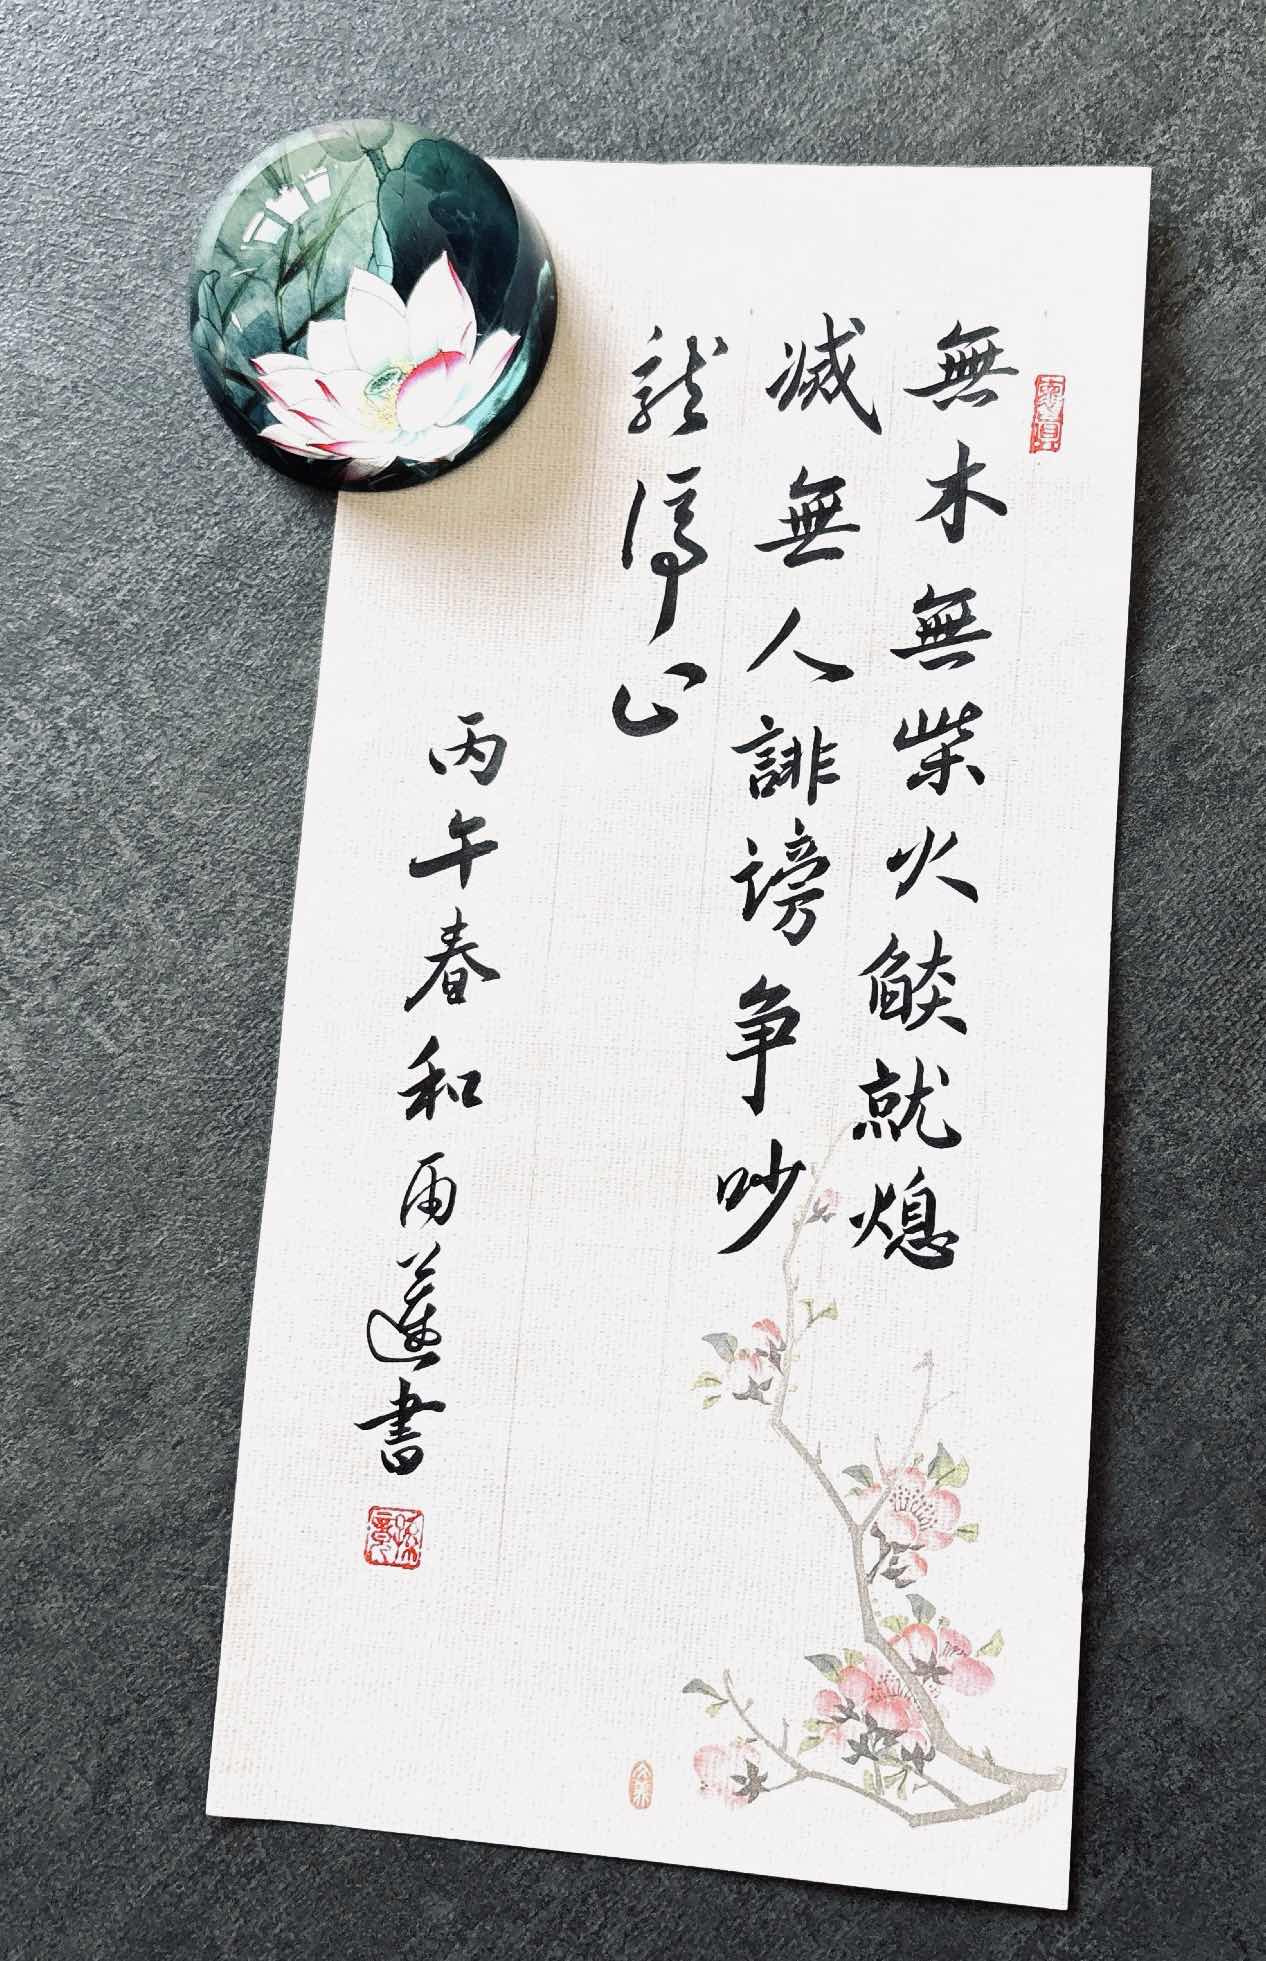 無木無柴火燄就熄
滅無人誹謗争吵
就停止
丙午春和雨蓮書